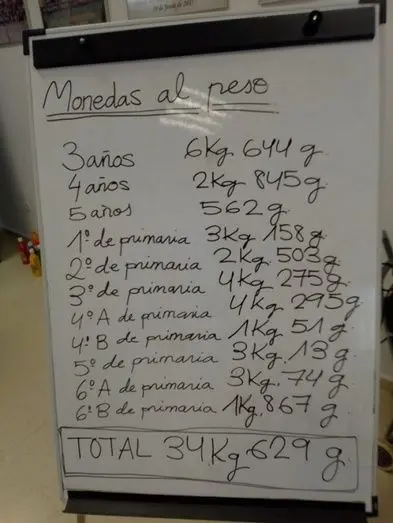 Monedas al peso
3 años 6Kg 644 g
4 años 2Kg 845 g
5 años 562 g
1º de primaria 3Kg 158 g
2º de primaria 2Kg 503 g
3º de primaria 4Kg 275 g
4º A de primaria 4Kg 295 g
4º B de primaria 1Kg 51 g
5º de primaria 3Kg. 13 g
6º A de primaria 3Kg. 74 g
6º B de primaria 1Kg. 867 g
TOTAL 34Kg 629 g